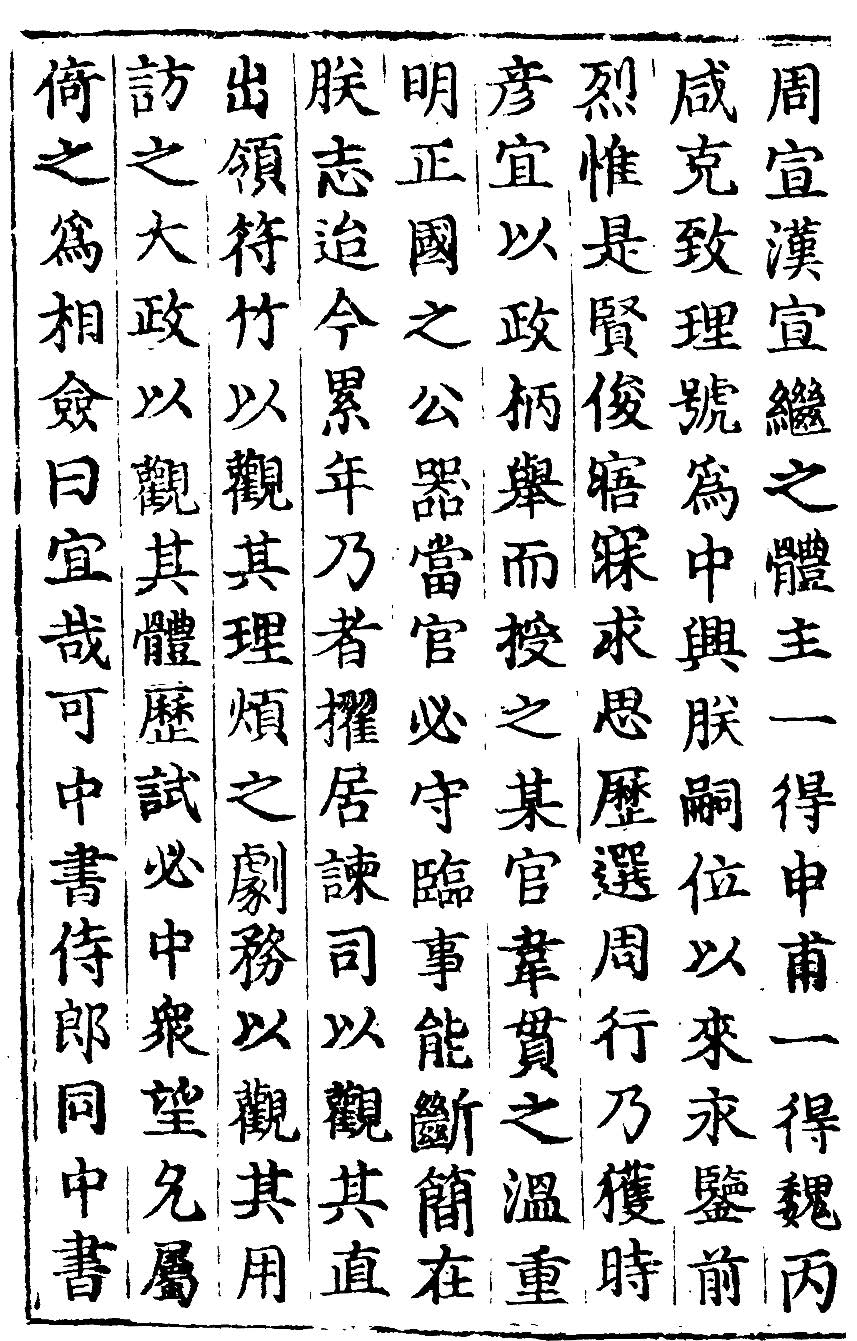 周宣漢宣繼之體主一得申甫一得魏丙
咸克致理號爲中興朕嗣位以來永鑒前
烈惟是賢俊寤寐求思歷選周行乃獲時
彦宜以政柄舉而授之某官韋貫之溫重
明正國之公器當官必守臨事能斷簡在
朕志迨今累年乃者擢居諫司以觀其直
出領符竹以觀其理煩之劇務以觀其用
訪之大政以觀其體歷試必中衆望允屬
倚之爲相僉曰宜哉可中書侍郎同中書